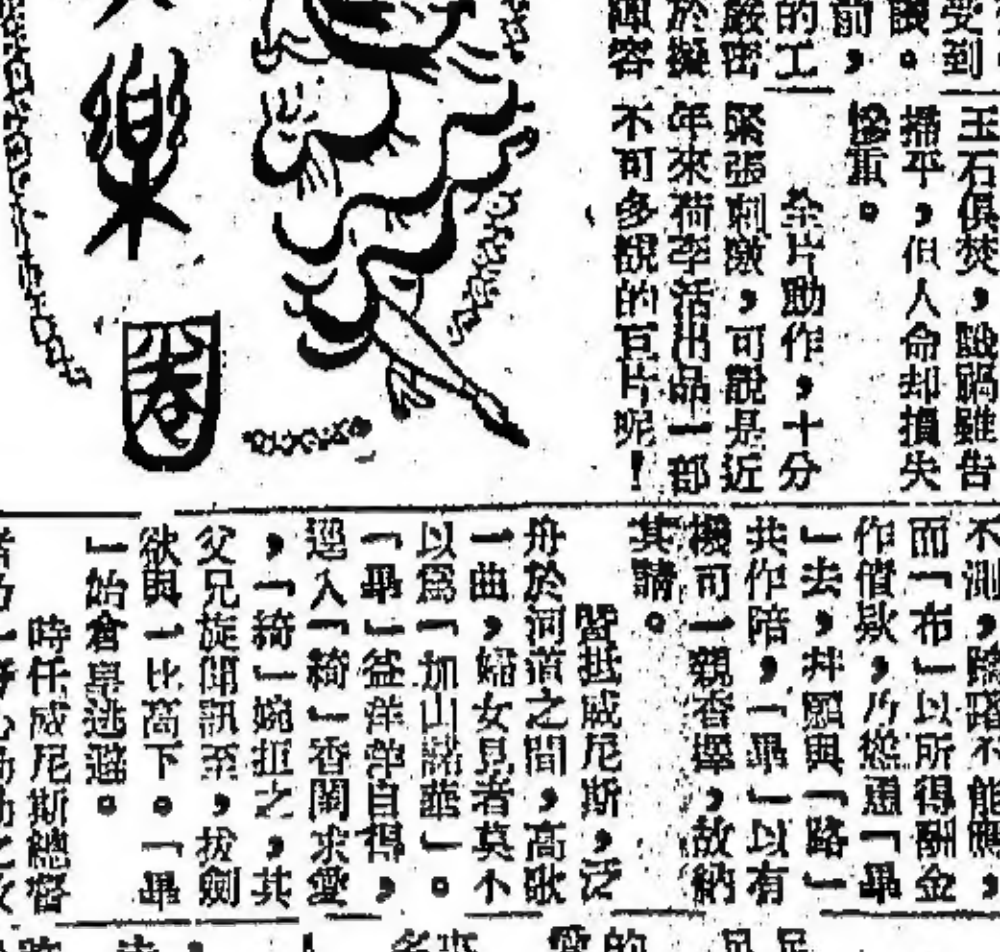 受到
前，
的工
嚴密
於擬
陣容
玉石俱焚，戰禍雖告
播平，但人命却損失
慘重。
全片動作，十分
緊張刺激，可說是近
年來荷李活出品一部
不可多覯的巨片呢！
樂
圈
不測，不能應，
而「布」以所得酬金
作償欵，乃慫恿「畢
」去，幷願與「路」
共作陪，「畢」以有
機可一親香澤，故納
其請。
曁抵威尼斯，泛
舟於河道之間，高歌
一曲，婦女見者莫不
以爲「加山諾華」。
「畢」益洋洋自得，
逕入「綺」香閨求愛
，「綺」婉拒之，其
父兄旋聞訊至，拔劍
欲與一比高下。「畢
」始倉皇逃遁。
時任威尼斯總督